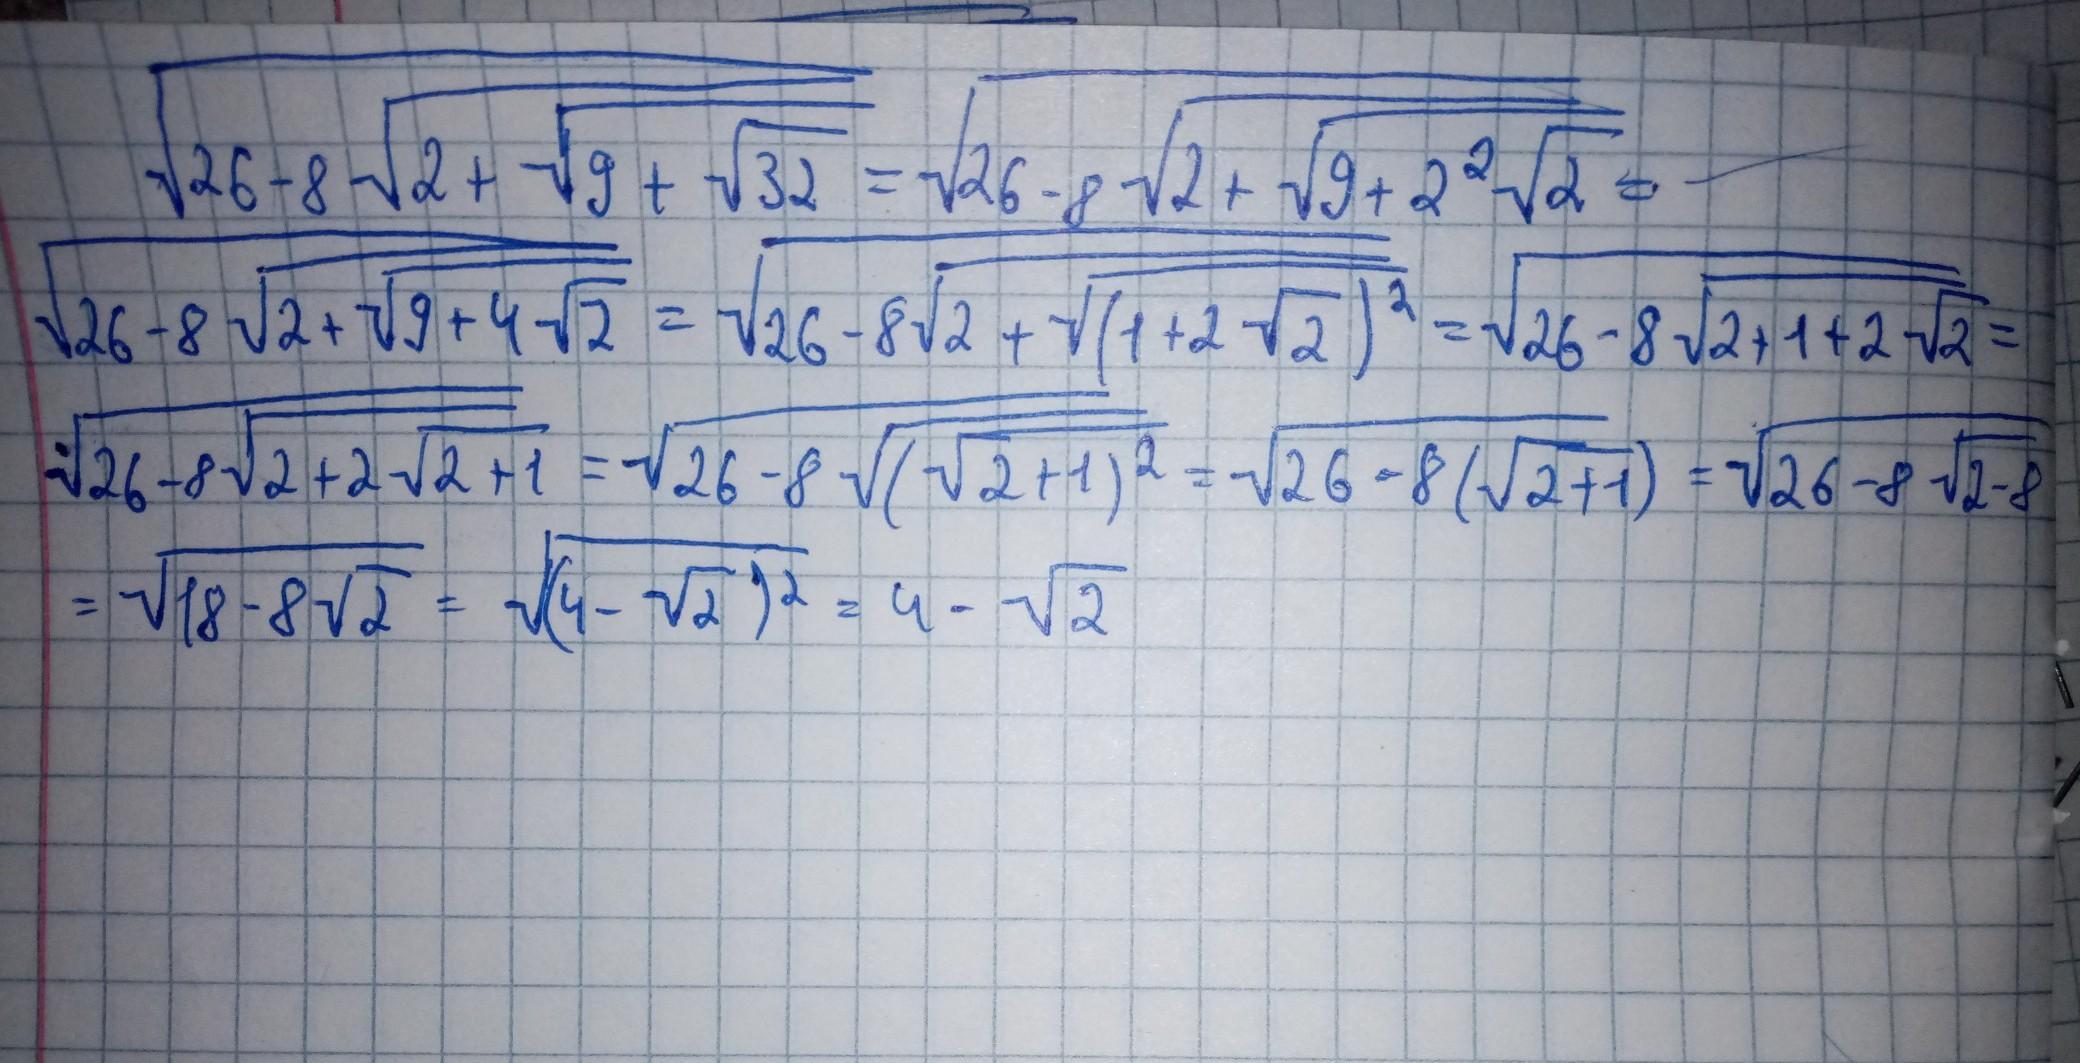 √26-8√2+√9+√32 = √26-8√2+√9+2²√2 =
√26-8√2+√9+4√2 = √26-8√2+√(1+2√2)² = √26-8√2+1+2√2 =
√26-8√2+2√2+1 = √26-8√(√2+1)² = √26-8(√2+1) = √26-8√2-8
= √18-8√2 = √(4-√2)² = 4-√2